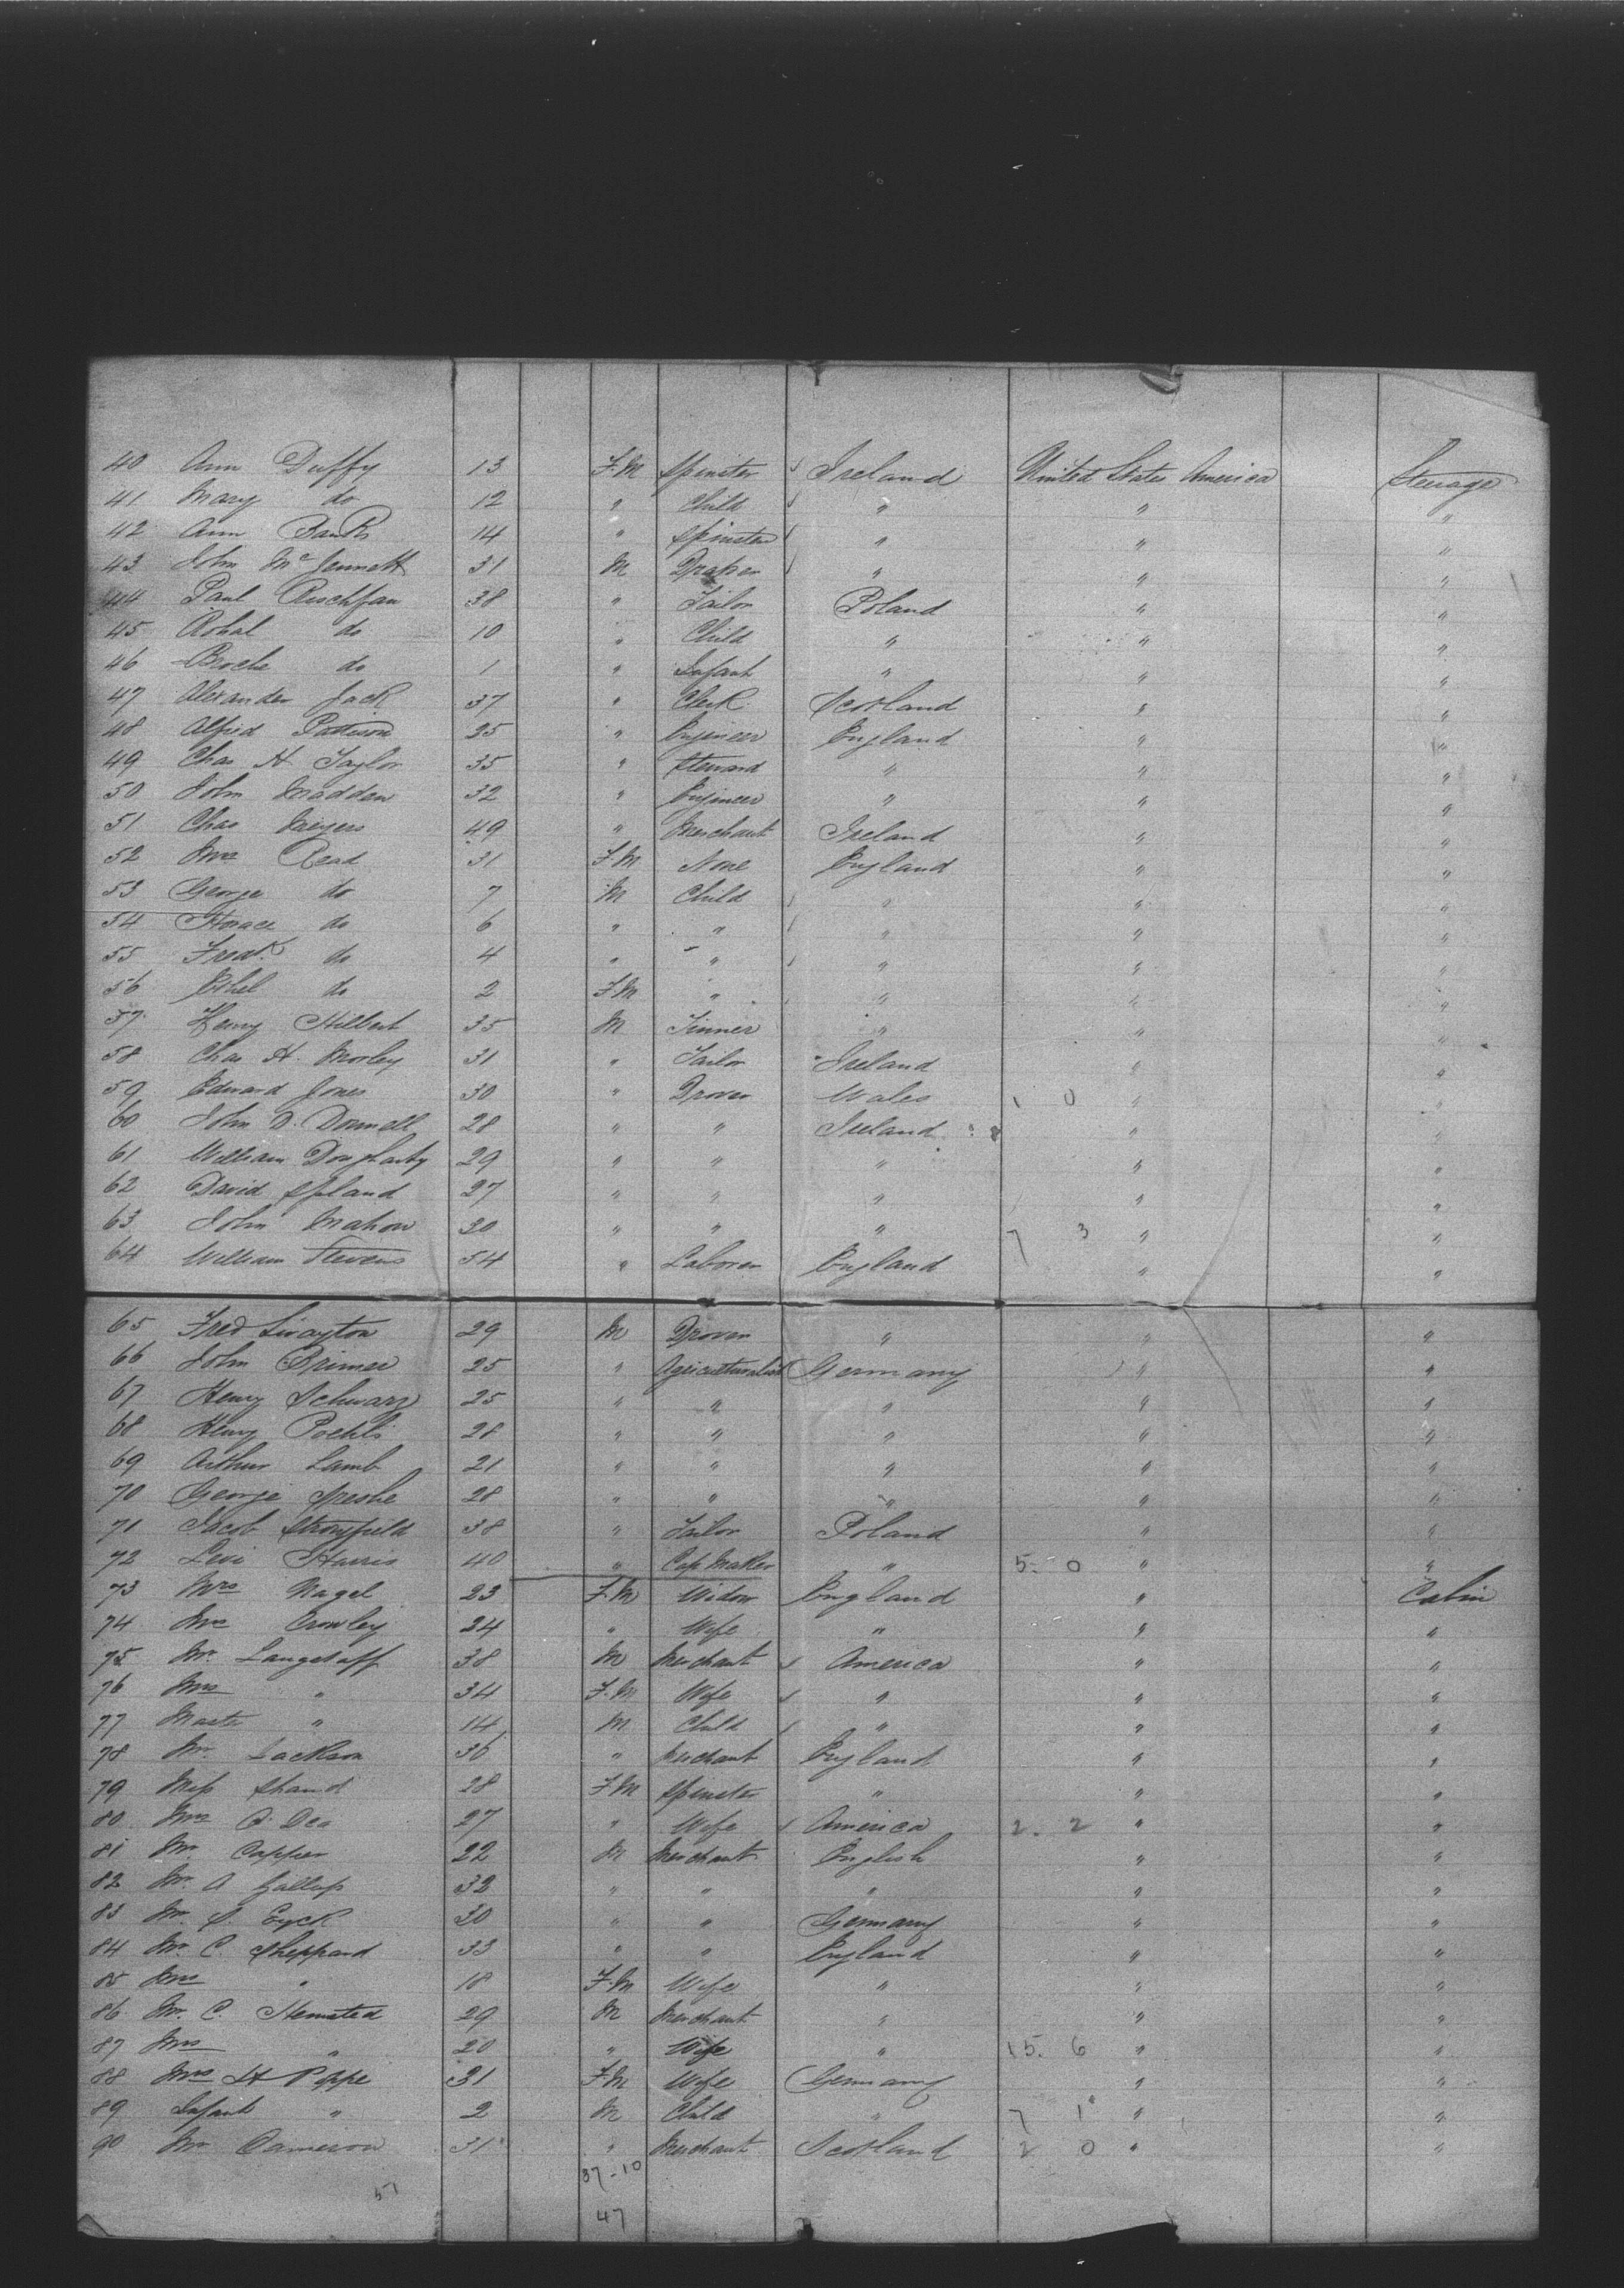 40 Ann Duffy 13 F.M Spinster Ireland United States America Steerage
41 Mary do 12 " Child " " "
42 Ann Banks 14 " Spinster " " "
43 John Mc 31 M Draper " " "
44 Paul 38 " Tailor Poland " "
45 do 10 " Child " " "
46 do 1 " Infant " " "
47 Alexander Jack 37 " Clerk Scotland " "
48 Alfred Pattison 25 " Engineer England " "
49 Chas H. Taylor 35 " Steward " " "
50 John Madden 32 " Engineer " " "
51 Chas Meyers 49 " Merchant Ireland " "
52 Mrs Read 31 F.M None England " "
53 George do 7 M Child " " "
54 Horace do 6 " " " " "
55 Fredk do 4 " " " " "
56 Ethel do 2 F.M " " " "
57 Henry Hilbert 35 M Tinner " " "
58 Chas H. Morley 31 " Tailor Ireland " "
59 Edward Jones 30 " Drover Wales 1 0 " "
60 John D. Donnell 28 " " Ireland " "
61 William Dougharty 29 " " " " "
62 David 27 " " " " "
63 John Mahon 30 " " " 7 3 " "
64 William Stevens 54 " Laborer England " "
65 Fred 29 M Drover " " "
66 John Brimer 25 " Agriculturalist Germany " "
67 Henry Schwarz 25 " " " " "
68 Henry Poehls 28 " " " " "
69 Arthur Lamb 21 " " " " "
70 George 28 " " " " "
71 Jacob 38 " Tailor Poland " "
72 Levi Harris 40 " Cap Maker " 5. 0 " "
73 Mrs Nagel 23 F.M Widow England " Cabin
74 Mrs Crowley 24 " Wife " " "
75 Mr. Langstaff 38 M Merchant America " "
76 Mrs " 34 F.M Wife " " "
77 Master " 14 M Child " " "
78 Mr. Jackson 36 " Merchant England " "
79 Miss Shand 28 F.M Spinster " " "
80 Mrs O'Dea 27 " Wife America 2. 2 " "
81 Mr. Capper 22 M Merchant English " "
82 Mr. A Gallup 32 " " " " "
83 Mr. S. Eyck 30 " " Germany " "
84 Mr. C. Sheppard 33 " " England " "
85 Mrs " 18 F.M Wife " " "
86 Mr. C. Hemsted 29 M Merchant " " "
87 Mrs " 20 " Wife " 15. 6 " "
88 Mrs H Poppe 31 F.M Wife Germany " "
89 Infant " 2 M Child " 7 1 " "
90 Mr Cameron 31 " Merchant Scotland 2 0 " "
37-10
51
47